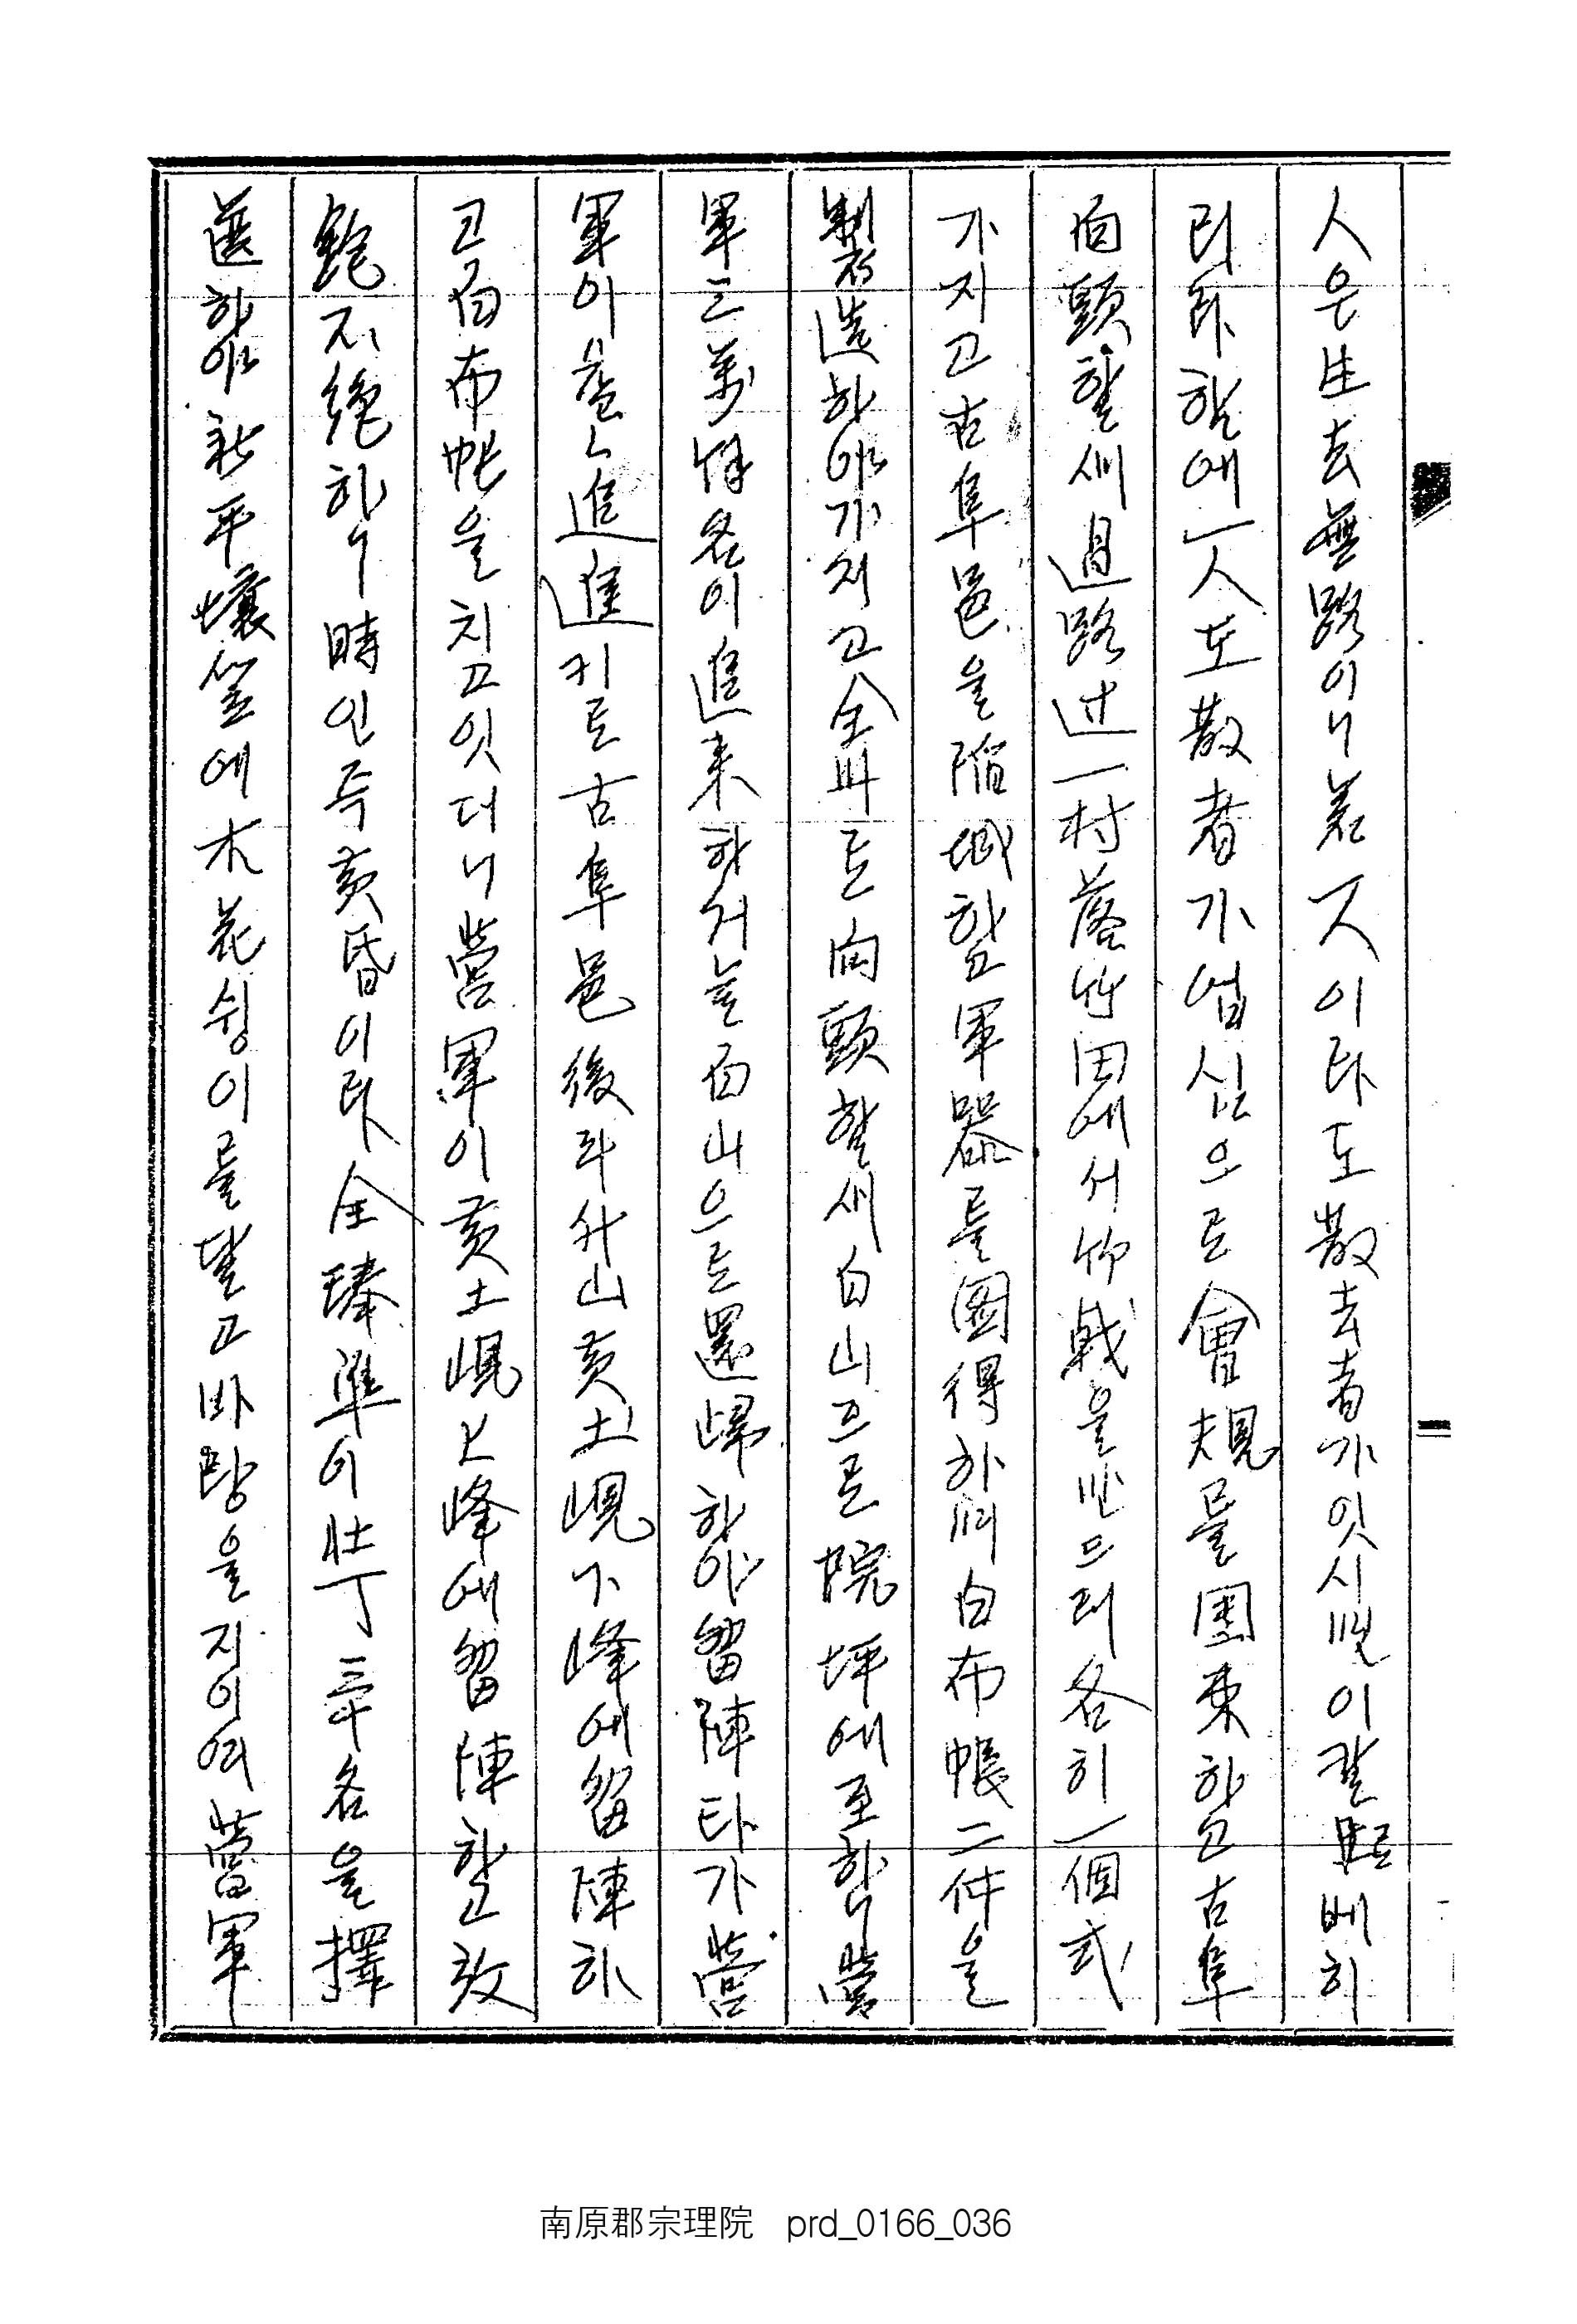 人은 生去無路이니 若一人이라도 散去者가 잇시면 이 칼로 베히
리라 함에 一人도 散者가 업심으로 會規를 團束하고 古阜
向頭할새 過路 過一村落 竹田에서 竹戟을 비으려 各히 一個式
가지고 古阜邑을 陷城하고 軍器를 圖得하며 白布帳 二件을
製造하야 가지고 全州로 向頭할새 白山으로 院坪에 至하니 營
軍 三萬餘名이 進來하거늘 白山으로 還歸하야 留陣타가 營
軍이 漸漸 進進키로 古阜邑 後 斗升山 黃土峴 下峰에 留陣하
고 白布帳을 치고 잇더니 營軍이 黃土峴 上峰에 留陣하고 放
銃不絶하니 時인즉 黃昏이라 全琫準이 壯丁 三千名을 擇
選하야 新平壤笠에 木花쉥이를 달고 바랑을 지이여 營軍
南原郡宗理院 prd_0166_036